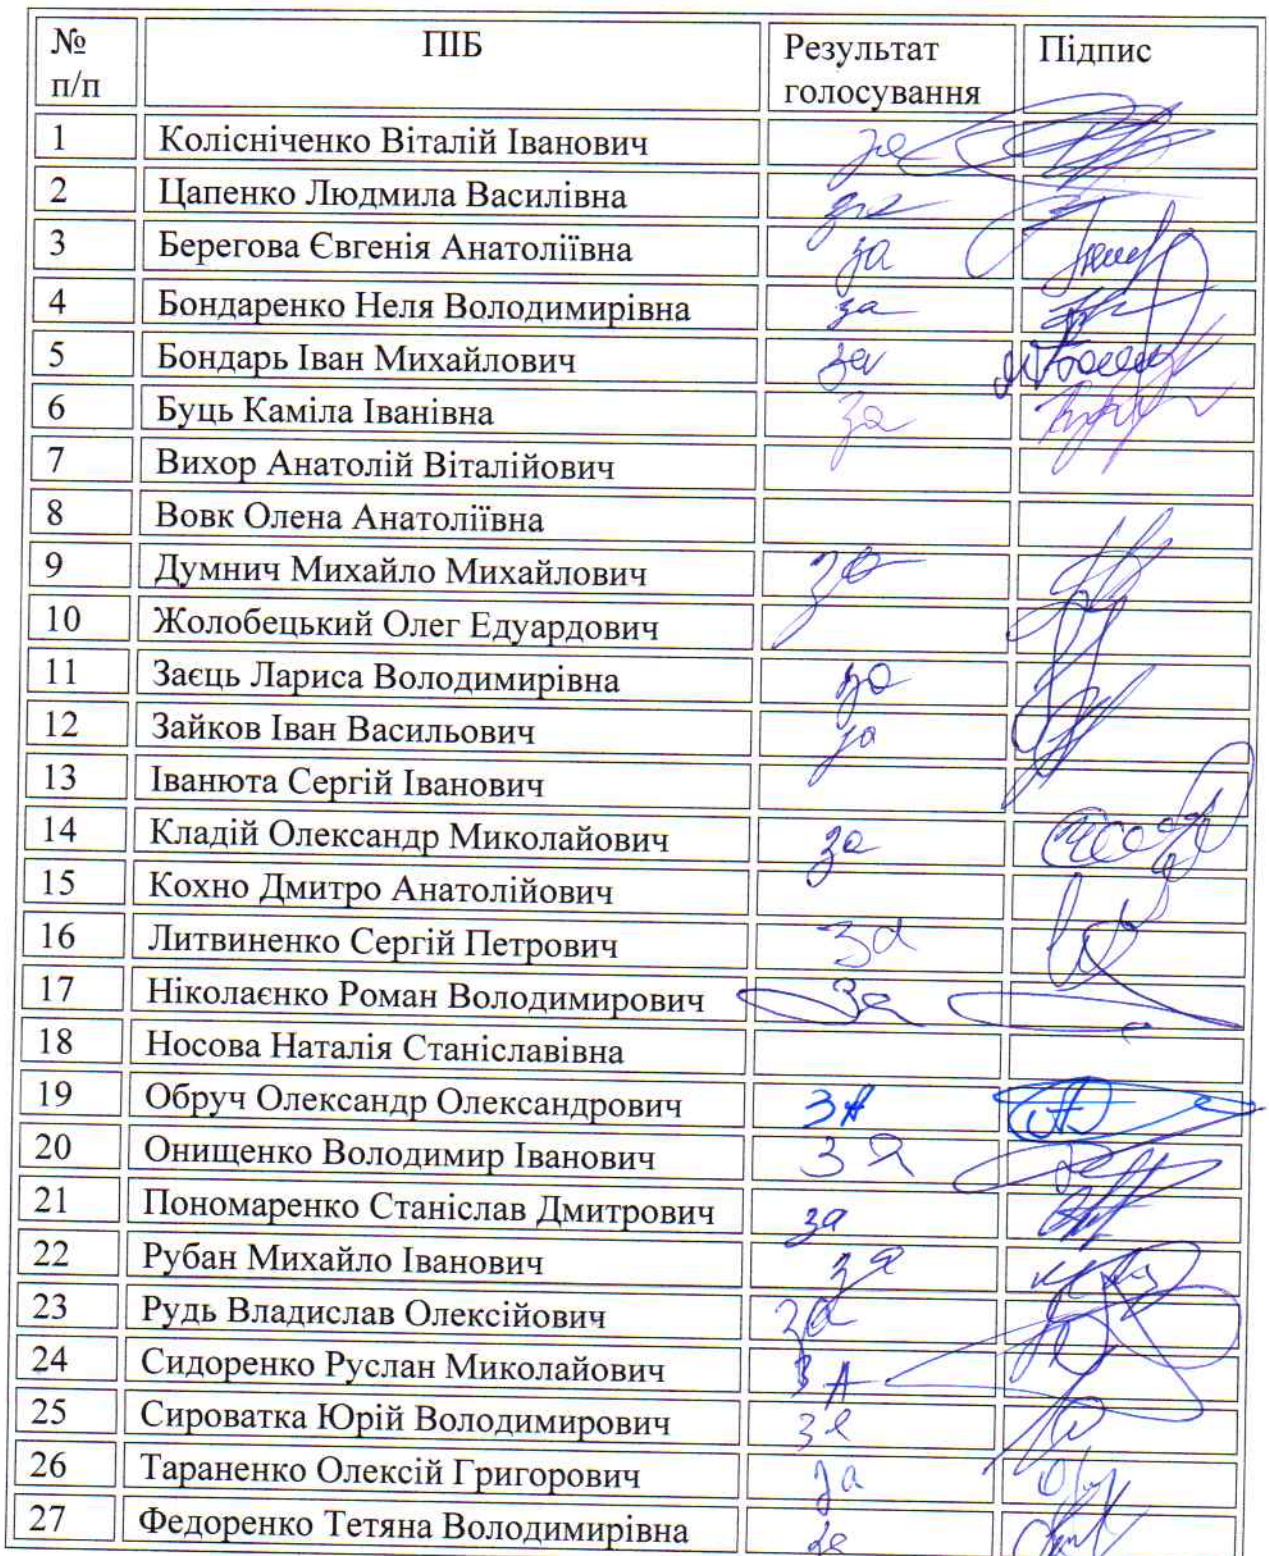 № п/п ПІБ Результат голосування Підпис
1 Колісніченко Віталій Іванович за
2 Цапенко Людмила Василівна за
3 Берегова Євгенія Анатоліївна за
4 Бондаренко Неля Володимирівна за
5 Бондарь Іван Михайлович за
6 Буць Каміла Іванівна за
7 Вихор Анатолій Віталійович
8 Вовк Олена Анатоліївна
9 Думнич Михайло Михайлович за
10 Жолобецький Олег Едуардович
11 Заєць Лариса Володимирівна за
12 Зайков Іван Васильович за
13 Іванюта Сергій Іванович
14 Кладій Олександр Миколайович за
15 Кохно Дмитро Анатолійович
16 Литвиненко Сергій Петрович за
17 Ніколаєнко Роман Володимирович за
18 Носова Наталія Станіславівна
19 Обруч Олександр Олександрович ЗА
20 Онищенко Володимир Іванович за
21 Пономаренко Станіслав Дмитрович за
22 Рубан Михайло Іванович за
23 Рудь Владислав Олексійович за
24 Сидоренко Руслан Миколайович ЗА
25 Сироватка Юрій Володимирович за
26 Тараненко Олексій Григорович за
27 Федоренко Тетяна Володимирівна за